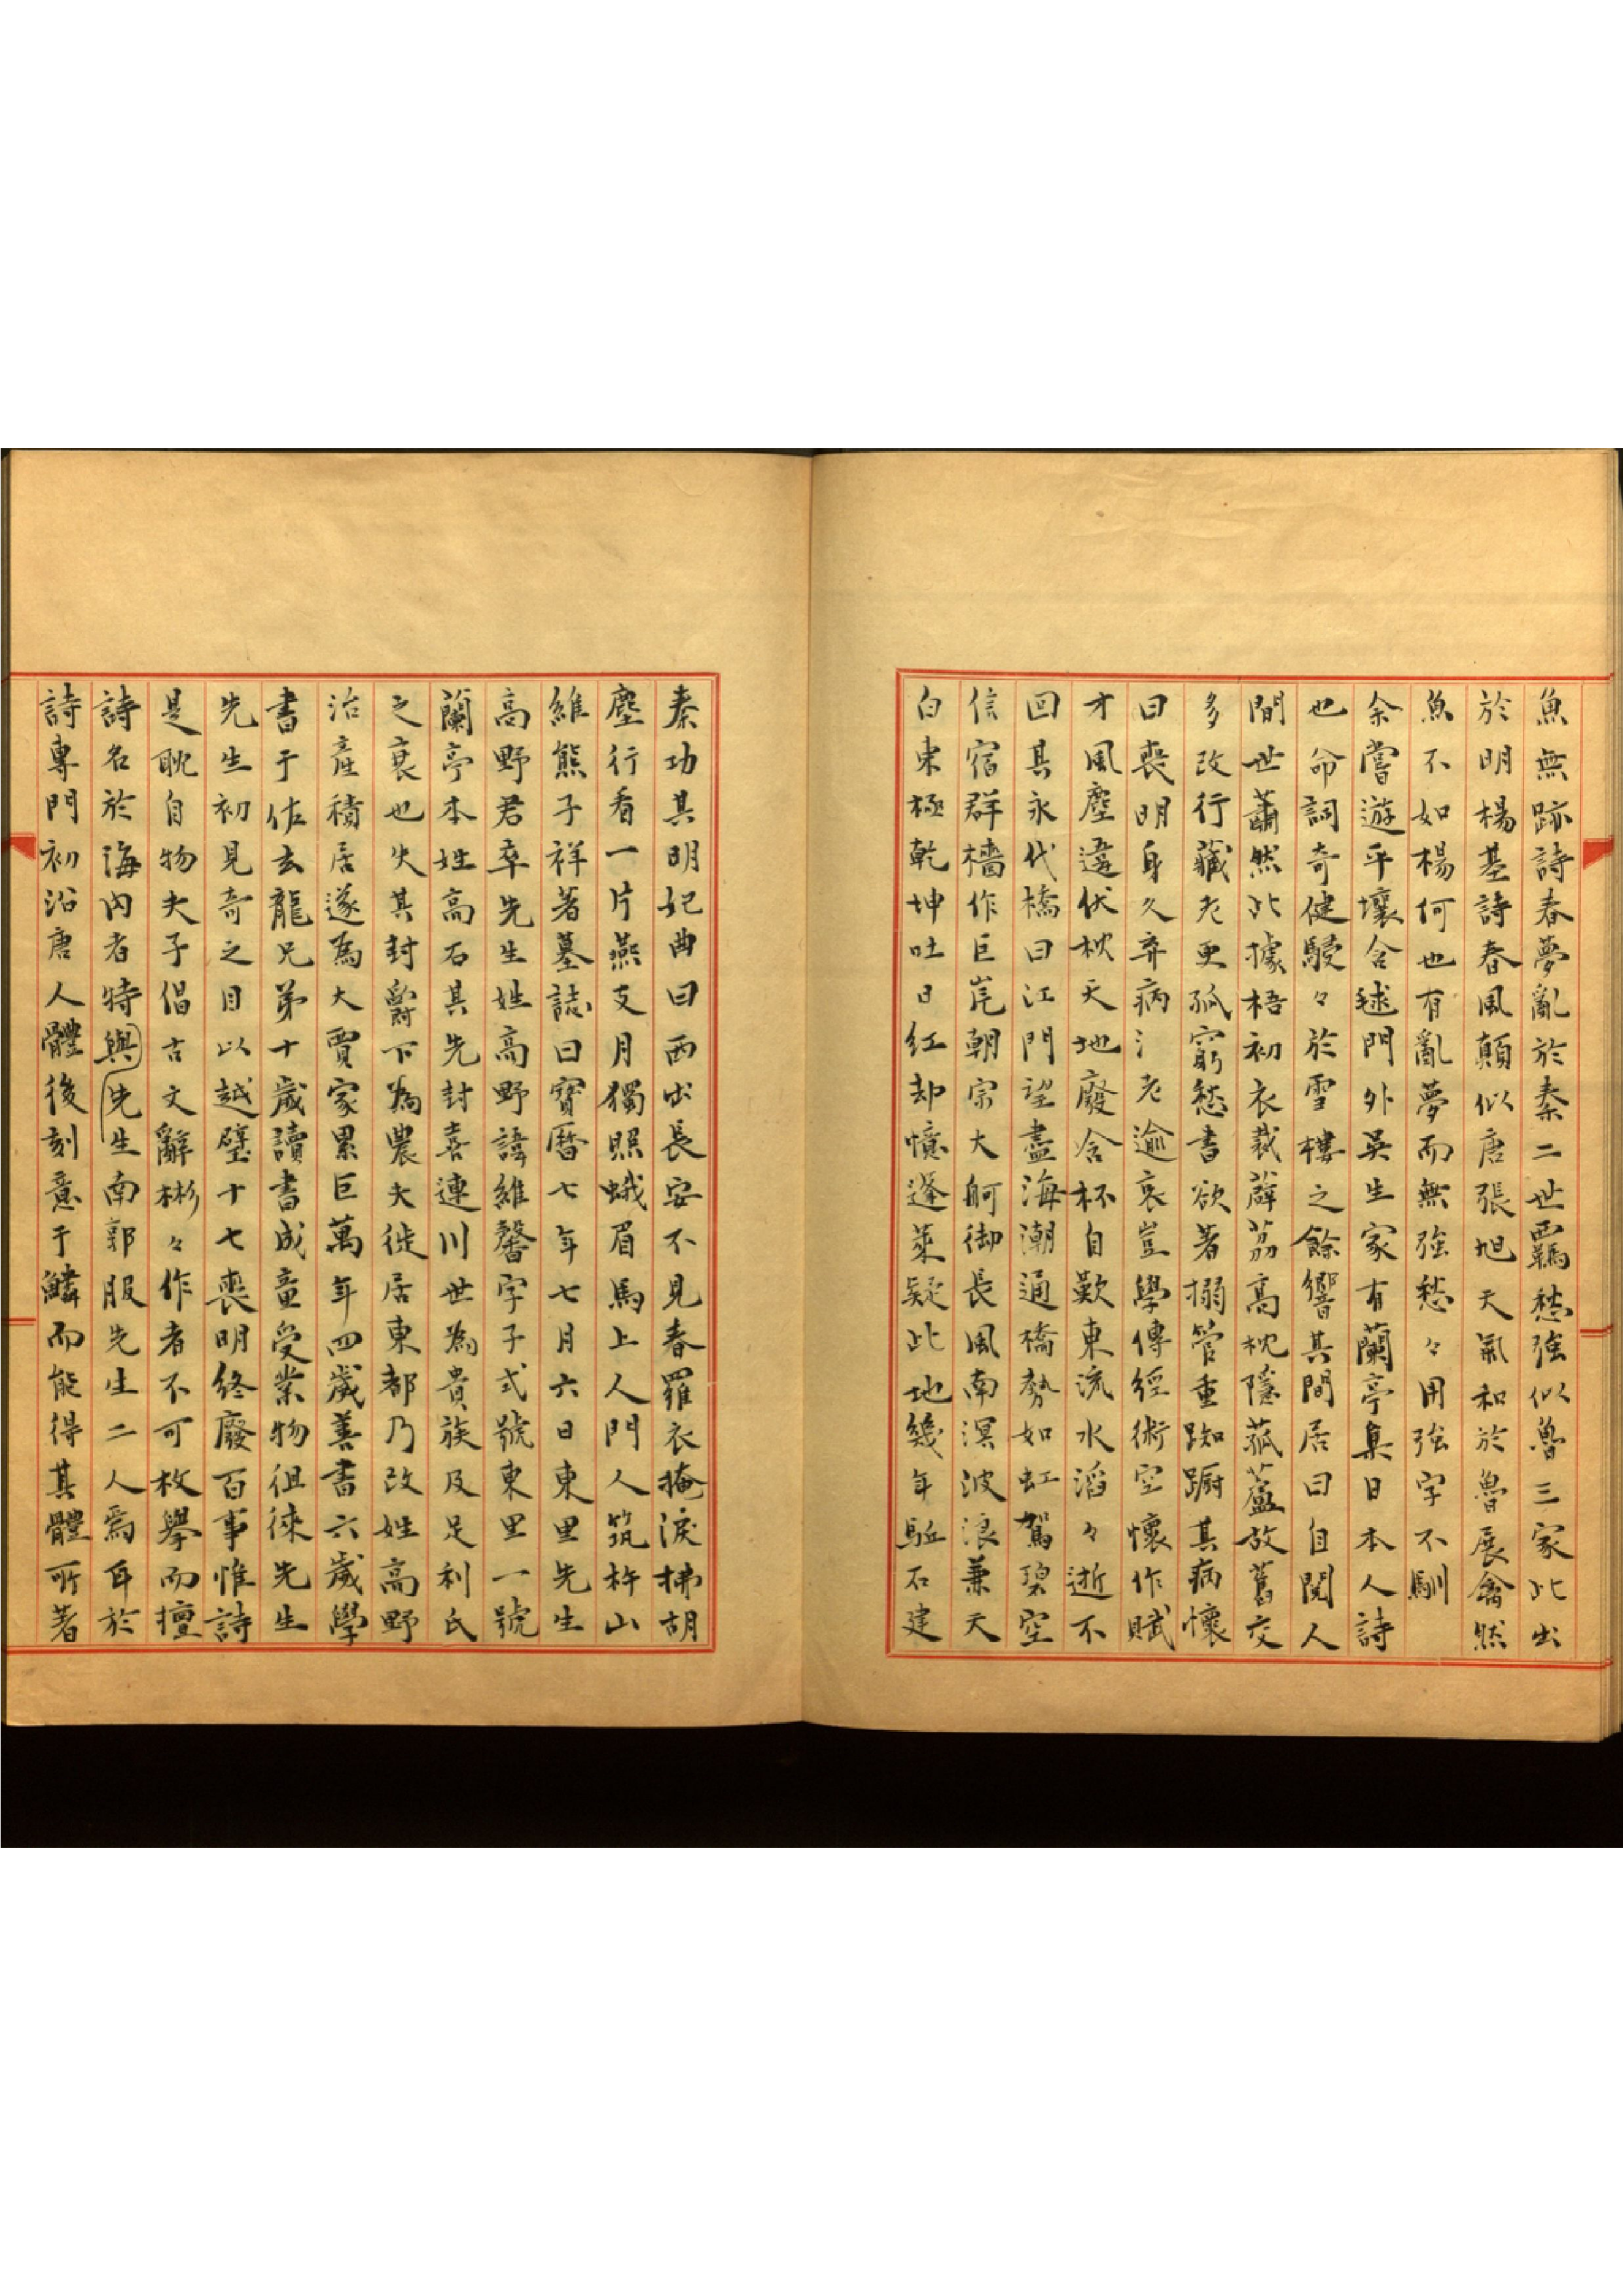 魚無跡詩春夢亂於秦二世羈愁強似魯三家此出
於明楊基詩春風顛似唐張旭天氣和於魯展禽然
魚不如楊何也有亂夢而無強愁々用強字不馴
余嘗遊平壤含毬門外吳生家有蘭亭集日本人詩
也命詞奇健駸々於雪樓之餘響其閒居曰自閱人
間世蕭然此據梧初衣裁薜荔高枕隱菰蘆放舊交
多改行藏老更孤窮愁書欲著搦管重踟躕其病懷
曰喪明身久弃病氵老逾哀豈學傳經術空懷作賦
才風塵違伏枕天地廢含杯自歎東流水滔々逝不
回其永代橋曰江門望盡海潮通橋勢如虹駕碧空
信宿群檣作巨㟁朝宗大舸御長風南溟波浪兼天
白東極乾坤吐日紅却憶逢萊疑此地幾年駈石建
秦功其明妃曲曰西出長安不見春羅衣掩淚拂胡
塵行看一片燕支月獨照蛾眉馬上人門人筑杵山
維熊子祥著墓誌曰寶曆七年七月六日東里先生
高野君卒先生姓高野諱維馨字子式號東里一號
蘭亭本姓高石其先封喜連川世為貴族及足利氏
之衰也失其封爵下為農夫徙居東都乃改姓高野
治產積居遂為大賈家累巨萬年四歲善書六歲學
書于佐玄龍兄弟十歲讀書成童受業物徂徠先生
先生初見奇之目以越璧十七喪明終廢百事惟詩
是耽自物夫子倡古文辭彬々作者不可枚擧而擅
詩名於海內者特與先生南郭服先生二人焉耳於
詩專門初沿唐人體後刻意于鱗而能得其體所著